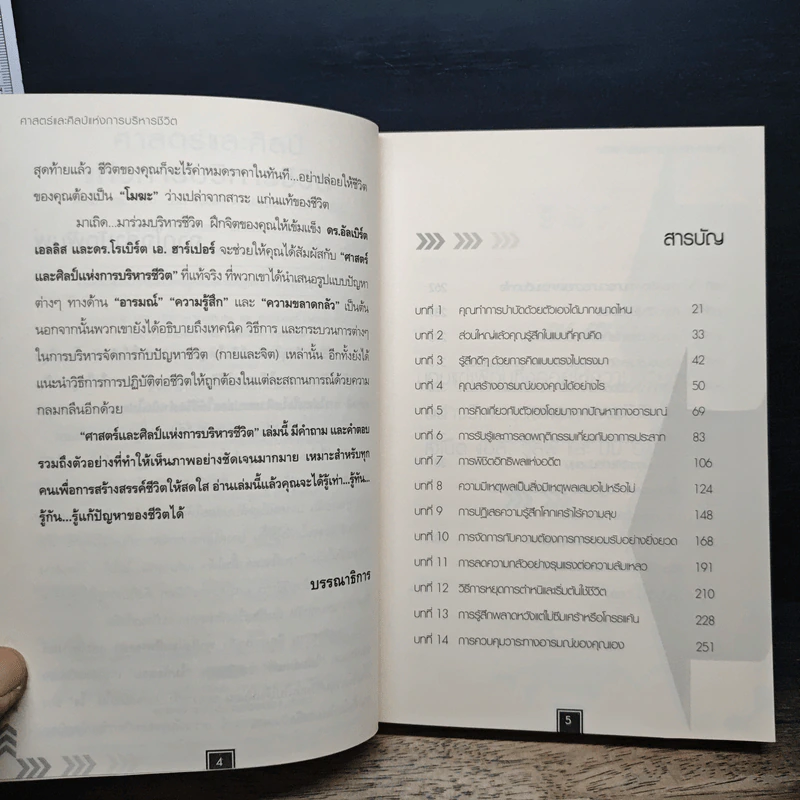 ศาสตร์และศิลป์แห่งการบริหารชีวิต
สุดท้ายแล้ว ชีวิตของคุณก็จะไร้ค่าหมดราคาในทันที...อย่าปล่อยให้ชีวิต
ของคุณต้องเป็น “โมฆะ” ว่างเปล่าจากสาระ แก่นแท้ของชีวิต
มาเถิด...มาร่วมบริหารชีวิต ฝึกจิตของคุณให้เข้มแข็ง ดร.อัลเบิร์ต
เอลลิส และดร.โรเบิร์ต เอ. ฮาร์เปอร์ จะช่วยให้คุณได้สัมผัสกับ “ศาสตร์
และศิลป์แห่งการบริหารชีวิต” ที่แท้จริง ที่พวกเขาได้นำเสนอรูปแบบปัญหา
ต่างๆ ทางด้าน “อารมณ์” “ความรู้สึก” และ “ความขลาดกลัว” เป็นต้น
นอกจากนั้นพวกเขายังได้อธิบายถึงเทคนิค วิธีการ และกระบวนการต่างๆ
ในการบริหารจัดการกับปัญหาชีวิต (กายและจิต) เหล่านั้น อีกทั้งยังได้
แนะนำวิธีการการปฏิบัติต่อชีวิตให้ถูกต้องในแต่ละสถานการณ์ด้วยความ
กลมกลืนอีกด้วย
“ศาสตร์และศิลป์แห่งการบริหารชีวิต” เล่มนี้ มีคำถาม และคำตอบ
รวมถึงตัวอย่างที่ทำให้เห็นภาพอย่างชัดเจนมากมาย เหมาะสำหรับทุก
คนเพื่อการสร้างสรรค์ชีวิตให้สดใส อ่านเล่มนี้แล้วคุณจะได้รู้เท่า...รู้ทัน...
รู้กัน...รู้แก้ปัญหาของชีวิตได้
บรรณาธิการ
4
สารบัญ
บทที่ 1 คุณทำการบำบัดด้วยตัวเองได้มากขนาดไหน 21
บทที่ 2 ส่วนใหญ่แล้วคุณรู้สึกในแบบที่คุณคิด 33
บทที่ 3 รู้สึกดีๆ ด้วยการคิดแบบตรงไปตรงมา 42
บทที่ 4 คุณสร้างอารมณ์ของคุณได้อย่างไร 50
บทที่ 5 การคิดเกี่ยวกับตัวเองโดยมาจากปัญหาทางอารมณ์ 69
บทที่ 6 การรับรู้และการลดพฤติกรรมเกี่ยวกับอาการประสาท 83
บทที่ 7 การพิชิตอิทธิพลแห่งอดีต 106
บทที่ 8 ความมีเหตุผลเป็นสิ่งมีเหตุผลเสมอไปหรือไม่ 124
บทที่ 9 การปฏิเสธความรู้สึกโศกเศร้าไร้ความสุข 148
บทที่ 10 การจัดการกับความต้องการการยอมรับอย่างยิ่งยวด 168
บทที่ 11 การลดความกลัวอย่างรุนแรงต่อความล้มเหลว 191
บทที่ 12 วิธีการหยุดการตำหนิและเริ่มต้นใช้ชีวิต 210
บทที่ 13 การรู้สึกพลาดหวังแต่ไม่ซึมเศร้าหรือโกรธแค้น 228
บทที่ 14 การควบคุมวาระทางอารมณ์ของคุณเอง 251
5